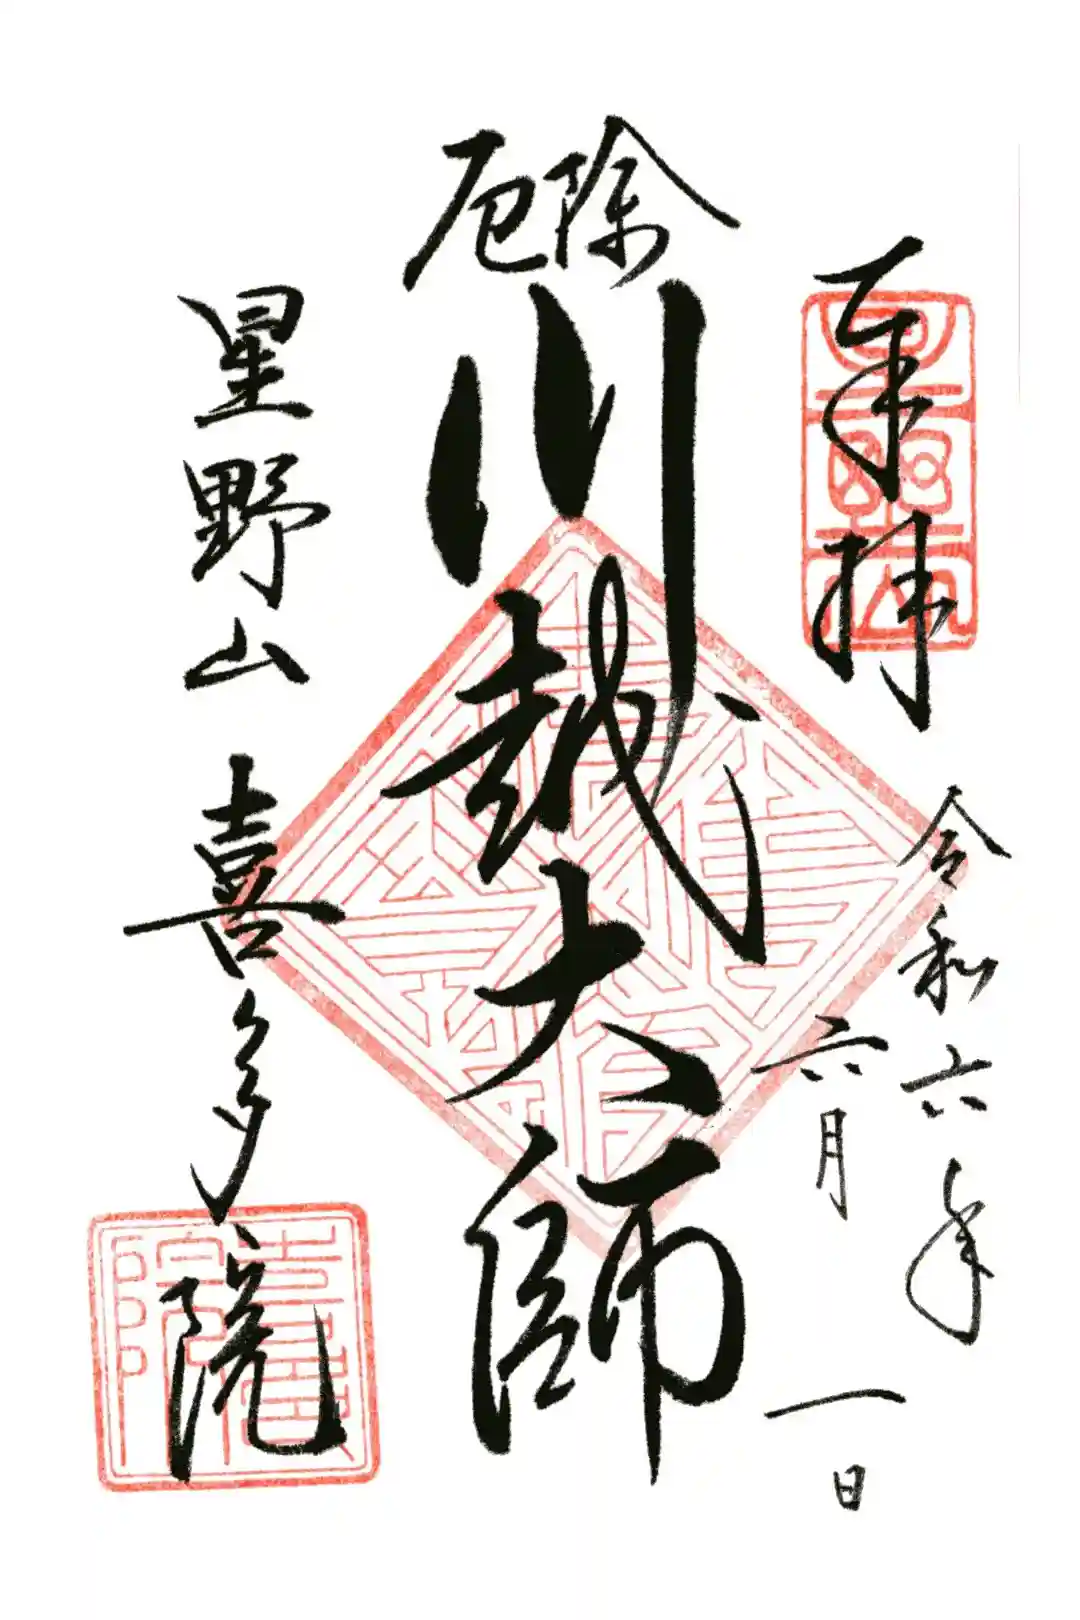 奉拝
令和六年
六月一日
厄除
川越大師
星野山 喜多院